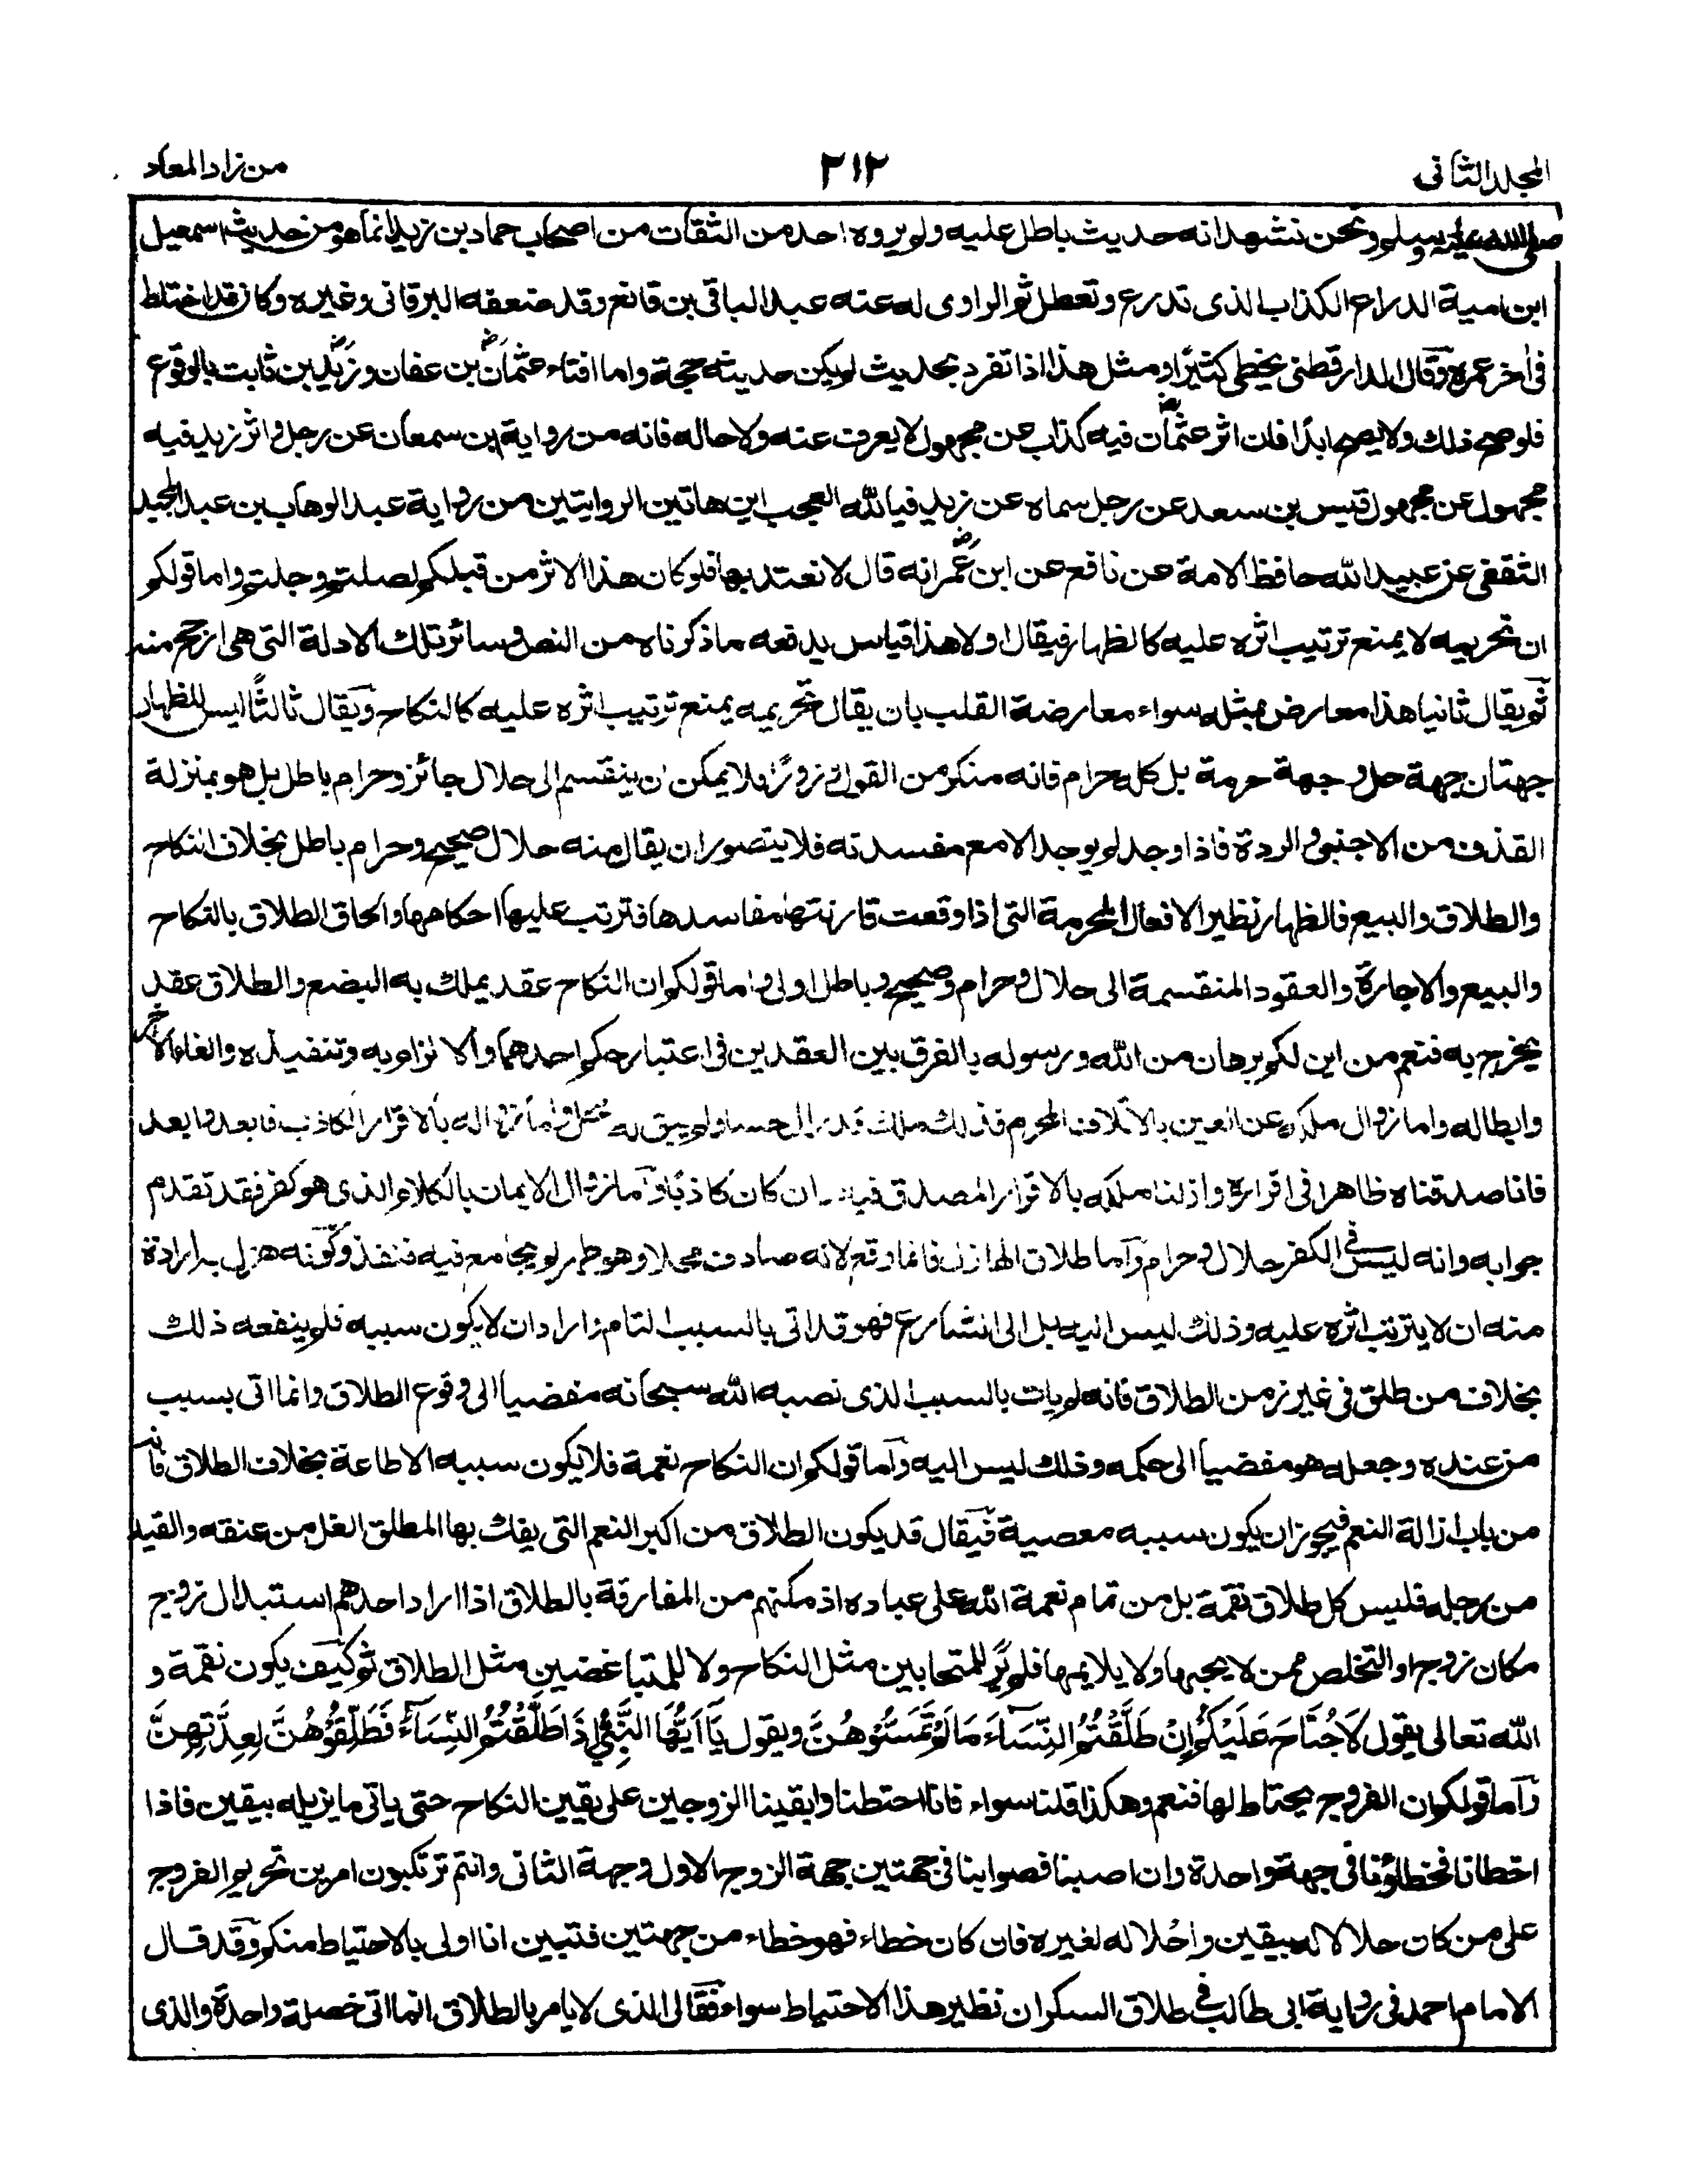 المجلد الثانى
٢١٢
من زاد المعاد
صلى الله عليه وسلم ونحن نشهد انه حديث باطل عليه ولم يروه احد من الثقات من اصحاب حماد بن زيد انما هو من حديث اسمعيل
ابن امية الدراع الكذاب الذى تدرع وتعطل ثم الراوى له عنه عبد الباقى بن قانع وقد ضعفه البرقانى وغيره وكان قد اختلط
فى آخر عمره وقال الدارقطنى يخطى كثيرا ومثل هذا اذا تفرد بحديث لم يكن حديثه حجة واما افتاء عثمان بن عفان وزيد بن ثابت بالوقوع
فلو صح ذلك ولا يصح ابدا فان اثر عثمان فيه كذاب عن مجهول لا يعرف عنه ولا حاله فانه من رواية ابن سمعان عن رجل واثر زيد فيه
مجهول عن مجهول قيس بن سعد عن رجل سماه عن زيد فيا لله العجب اين هاتين الروايتين من رواية عبد الوهاب بن عبد المجيد
الثقفى عن عبيد الله حافظ الامة عن نافع عن ابن عمر انه قال لا نعتد بها فلو كان هذا الاثر من قبلكم لصلتم وجلتم واما قولكم
ان تحريمه لا يمنع ترتيب اثره عليه كالظهار فيقال اولا هذا قياس يدفعه ما ذكرناه من النص وسائر تلك الادلة التى هى ارجح منه
ثم يقال ثانيا هذا معارض بمثله سواء معارضة القلب بان يقال تحريمه يمنع ترتيب اثره عليه كالنكاح ويقال ثالثا ليس للظهار
جهتان جهة حل وجهة حرمة بل كله حرام فانه منكر من القول وزورا فلا يمكن ان ينقسم الى حلال جائز وحرام باطل بل هو بمنزلة
القذف من الاجنبى والردة فاذا وجد لم يوجد الا مع مفسدته فلا يتصور ان يقال منه حلال صحيح وحرام باطل بخلاف النكاح
والطلاق والبيع فالظهار نظير الافعال المحرمة التى اذا وقعت قارنتها مفاسدها فترتب عليها احكامها والحاق الطلاق بالنكاح
والبيع والاجارة والعقود المنقسمة الى حلال وحرام وصحيح وباطل اولى واما قولكم ان النكاح عقد يملك به البضع والطلاق عقد
يخرج به فنعم من اين لكم برهان من الله ورسوله بالفرق بين العقدين فى اعتبار حكم احدهما والالزام به وتنفيذه والغاء الآخر
وابطاله واما زوال ملكه عن العين بالاتلاف المحرم فذلك ملك قد زال حسا ولم يبق له محل واما زواله بالاقرار الكاذب فابعد وابعد
فانا صدقناه ظاهرا فى اقراره وازلنا ملكه بالاقرار المصدق فيه وان كان كاذبا واما زوال الايمان بالكلام الذى هو كفر فقد تقدم
جوابه وانه ليس فى الكفر حلال وحرام واما طلاق الهازل فانما وقع لانه صادف محلا وهو طهر لم يجامع فيه فنفذ وكونه هزل به ارادة
منه ان لا يترتب اثره عليه وذلك ليس اليه بل الى الشارع فهو قد اتى بالسبب التام واراد ان لا يكون سببه فلم ينفعه ذلك
بخلاف من طلق فى غير زمن الطلاق فانه لم يات بالسبب الذى نصبه الله سبحانه مفضيا الى وقوع الطلاق وانما اتى بسبب
من عنده وجعله هو مفضيا الى حكمه وذلك ليس اليه واما قولكم ان النكاح نعمة فلا يكون سببه الا طاعة بخلاف الطلاق فانه
من باب ازالة النعم فيجوز ان يكون سببه معصية فيقال قد يكون الطلاق من اكبر النعم التى يفك بها المطلق الغل من عنقه والقيد
من رجله فليس كل طلاق نقمة بل من تمام نعمة الله على عباده اذ مكنهم من المفارقة بالطلاق اذا اراد احدهم استبدال زوج
مكان زوج او التخلص ممن لا يحبها ولا يلايمها فلم ير للمتحابين مثل النكاح ولا للمتباغضين مثل الطلاق ثم كيف يكون نقمة و
الله تعالى يقول لَا جُنَاحَ عَلَيْكُمْ إِنْ طَلَّقْتُمُ النِّسَاءَ مَا لَمْ تَمَسُّوهُنَّ ويقول يَا أَيُّهَا النَّبِيُّ إِذَا طَلَّقْتُمُ النِّسَاءَ فَطَلِّقُوهُنَّ لِعِدَّتِهِنَّ
واما قولكم ان الفروج يحتاط لها فنعم وهكذا قلنا سواء فانا احتطنا وابقينا الزوجين على يقين النكاح حتى ياتى ما يزيله بيقين فاذا
اخطانا فخطاؤنا فى جهة واحدة وان اصبنا فصوابنا فى جهتين جهة الزوج الاول وجهة الثانى وانتم ترتكبون امرين تحريم الفروج
على من كان حلالا له بيقين واحلاله لغيره فان كان خطاء فهو خطاء من جهتين فتبين انا اولى بالاحتياط منكم وقد قال
الامام احمد فى رواية ابى طالب فى طلاق السكران نظير هذا الاحتياط سواء فقال الذى لا يامر بالطلاق انما اتى خصلة واحدة والذى